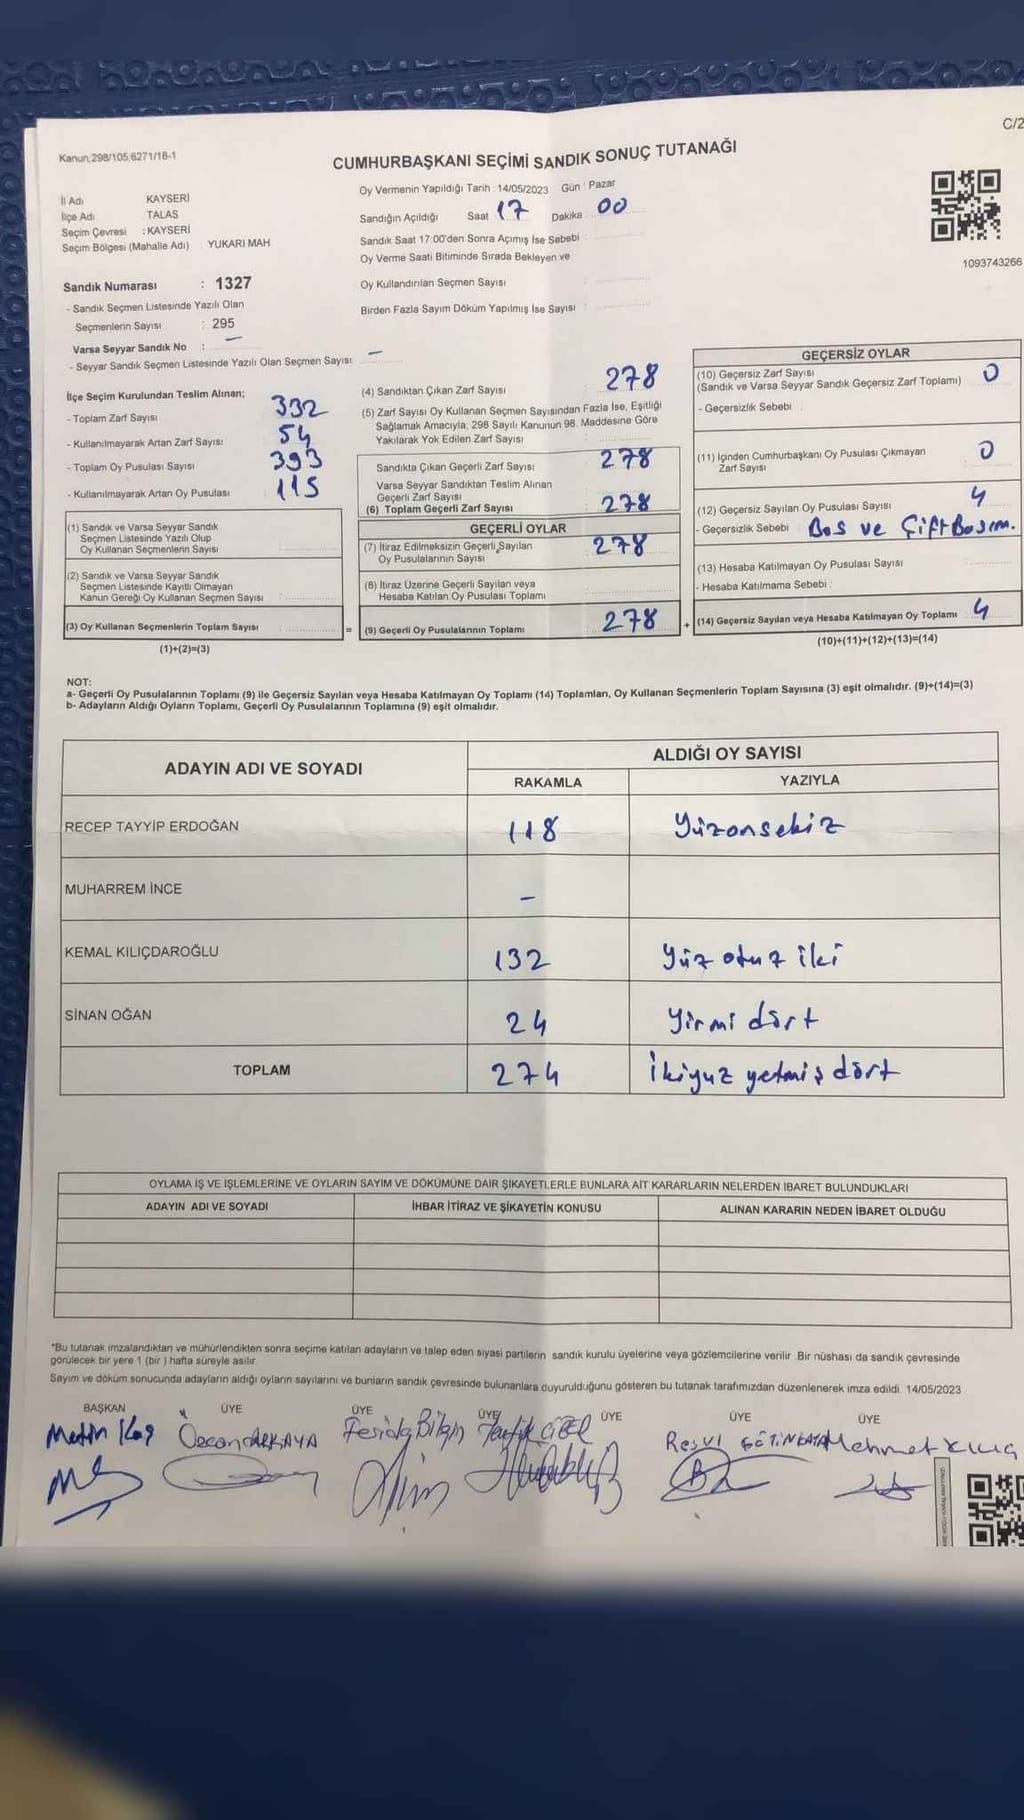 C/2
Kanun;298/105,6271/18-1
CUMHURBAŞKANI SEÇİMİ SANDIK SONUÇ TUTANAĞI
İl Adı KAYSERİ
İlçe Adı TALAS
Seçim Çevresi : KAYSERİ
Seçim Bölgesi (Mahalle Adı) YUKARI MAH
Oy Vermenin Yapıldığı Tarih : 14/05/2023 Gün : Pazar
Sandığın Açıldığı Saat 17 Dakika 00
Sandık Saat 17:00'den Sonra Açımış İse Sebebi
Oy Verme Saati Bitiminde Sırada Bekleyen ve
Oy Kullandırılan Seçmen Sayısı :
Birden Fazla Sayım Döküm Yapılmış İse Sayısı :
1093743266
Sandık Numarası : 1327
- Sandık Seçmen Listesinde Yazılı Olan
Seçmenlerin Sayısı : 295
Varsa Seyyar Sandık No : –
- Seyyar Sandık Seçmen Listesinde Yazılı Olan Seçmen Sayısı : –
İlçe Seçim Kurulundan Teslim Alınan;
- Toplam Zarf Sayısı 332
- Kullanılmayarak Artan Zarf Sayısı 54
- Toplam Oy Pusulası Sayısı 393
- Kullanılmayarak Artan Oy Pusulası 115
(1) Sandık ve Varsa Seyyar Sandık
Seçmen Listesinde Yazılı Olup
Oy Kullanan Seçmenlerin Sayısı
(2) Sandık ve Varsa Seyyar Sandık
Seçmen Listesinde Kayıtlı Olmayan
Kanun Gereği Oy Kullanan Seçmen Sayısı :
(3) Oy Kullanan Seçmenlerin Toplam Sayısı :
(1)+(2)=(3)
=
(4) Sandıktan Çıkan Zarf Sayısı : 278
(5) Zarf Sayısı Oy Kullanan Seçmen Sayısından Fazla İse, Eşitliği
Sağlamak Amacıyla, 298 Sayılı Kanunun 98. Maddesine Göre
Yakılarak Yok Edilen Zarf Sayısı
Sandıkta Çıkan Geçerli Zarf Sayısı : 278
Varsa Seyyar Sandıktan Teslim Alınan
Geçerli Zarf Sayısı
(6) Toplam Geçerli Zarf Sayısı : 278
GEÇERLİ OYLAR
(7) İtiraz Edilmeksizin Geçerli Sayılan
Oy Pusulalarının Sayısı 278
(8) İtiraz Üzerine Geçerli Sayılan veya
Hesaba Katılan Oy Pusulası Toplamı
(9) Geçerli Oy Pusulalarının Toplamı 278
+
GEÇERSİZ OYLAR
(10) Geçersiz Zarf Sayısı
(Sandık ve Varsa Seyyar Sandık Geçersiz Zarf Toplamı) 0
- Geçersizlik Sebebi :
(11) İçinden Cumhurbaşkanı Oy Pusulası Çıkmayan
Zarf Sayısı 0
(12) Geçersiz Sayılan Oy Pusulası Sayısı 4
- Geçersizlik Sebebi Boş ve Çift Basım.
(13) Hesaba Katılmayan Oy Pusulası Sayısı
- Hesaba Katılmama Sebebi :
(14) Geçersiz Sayılan veya Hesaba Katılmayan Oy Toplamı 4
(10)+(11)+(12)+(13)=(14)
NOT:
a- Geçerli Oy Pusulalarının Toplamı (9) ile Geçersiz Sayılan veya Hesaba Katılmayan Oy Toplamı (14) Toplamları, Oy Kullanan Seçmenlerin Toplam Sayısına (3) eşit olmalıdır. (9)+(14)=(3)
b- Adayların Aldığı Oyların Toplamı, Geçerli Oy Pusulalarının Toplamına (9) eşit olmalıdır.
ADAYIN ADI VE SOYADI ALDIĞI OY SAYISI
RAKAMLA YAZIYLA
RECEP TAYYİP ERDOĞAN 118 Yüzonsekiz
MUHARREM İNCE –
KEMAL KILIÇDAROĞLU 132 Yüz otuz iki
SİNAN OĞAN 24 Yirmi dört
TOPLAM 274 İkiyuz yetmiş dört
OYLAMA İŞ VE İŞLEMLERİNE VE OYLARIN SAYIM VE DÖKÜMÜNE DAİR ŞİKAYETLERLE BUNLARA AİT KARARLARIN NELERDEN İBARET BULUNDUKLARI
ADAYIN ADI VE SOYADI İHBAR İTİRAZ VE ŞİKAYETİN KONUSU ALINAN KARARIN NEDEN İBARET OLDUĞU
*Bu tutanak imzalandıktan ve mühürlendikten sonra seçime katılan adayların ve talep eden siyasi partilerin sandık kurulu üyelerine veya gözlemcilerine verilir. Bir nüshası da sandık çevresinde
görülecek bir yere 1 (bir ) hafta süreyle asılır.
Sayım ve döküm sonucunda adayların aldığı oyların sayılarını ve bunların sandık çevresinde bulunanlara duyurulduğunu gösteren bu tutanak tarafımızdan düzenlenerek imza edildi. 14/05/2023
BAŞKAN ÜYE ÜYE ÜYE ÜYE ÜYE ÜYE
Metin Koç Özcan Ferida Bilgin Mehmet Kılıç